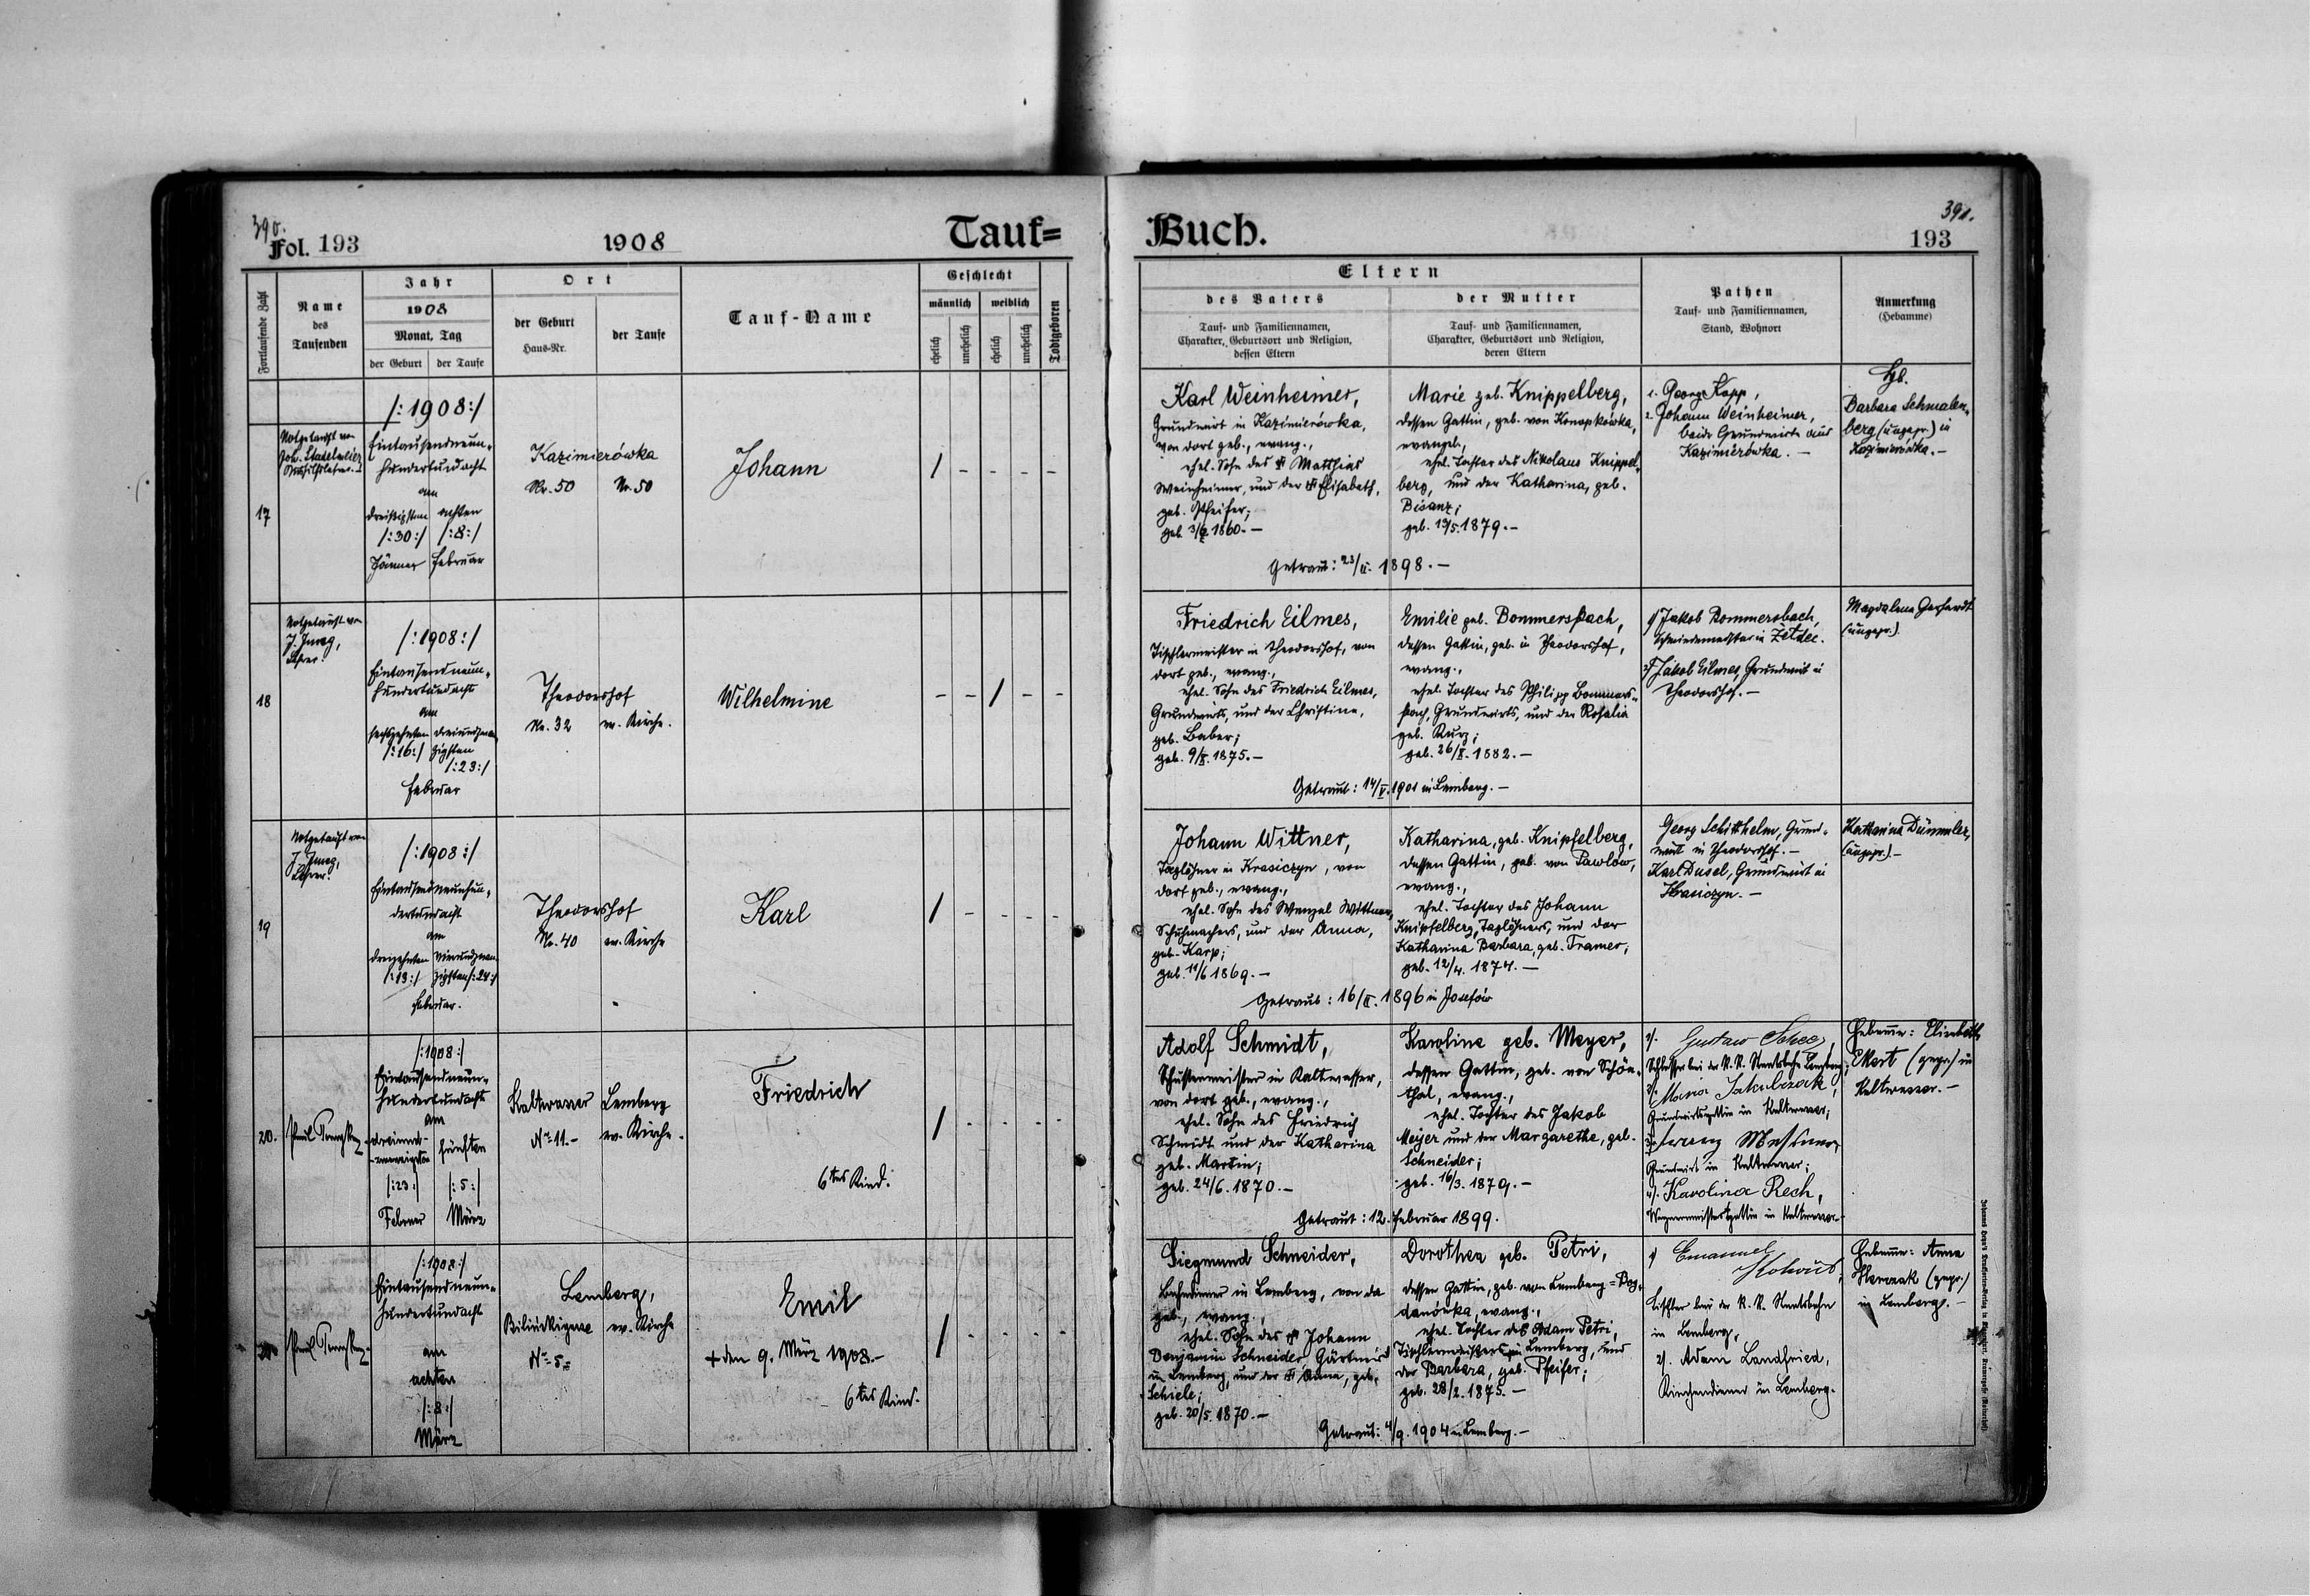 390.
Fol. 193
1908
Tauf=
Fortlaufende Zahl
Name
des
Taufenden
Jahr
1908
Monat, Tag
der Geburt
der Taufe
Ort
der Geburt
Haus-Nr.
der Taufe
Tauf-Name
Geschlecht
männlich
weiblich
ehelich
unehelich
ehelich
unehelich
Todtgeboren
17
Notgetauft von
Joh.
/:1908:/
Eintausendneun-
hundertundacht
am
dreißigsten achten
/:30:/ /:8:/
Jänner Februar
Kazimierówka
Nr. 50 Nr. 50
Johann
/ - - - -
18
Notgetauft von
J.
Lehrer.
/:1908:/
Eintausendneun-
hundertundacht
am
sechzehnten dreiundzwan-
/:16:/ zigsten
/:23:/
Februar
Theodorshof
Nr. 32 ev. Kirche.
Wilhelmine
- - / - -
19
Notgetauft von
J.
Lehrer.
/:1908:/
Eintausendneunhun-
dertundacht
am
dreizehnten vierundzwan-
/:13:/ zigsten /:24:/
Februar.
Theodorshof
Nr. 40 ev. Kirche
Karl
/ - - - -
20.
/:1908:/
Eintausendneun-
hundertundacht
am
dreiund-
zwanzigsten fünften
/:23:/ /:5:/
Februar März
Kaltwasser Lemberg
Nr. 11.- ev. Kirche.
Friedrich
6tes Kind.
/ - - - -
/:1908:/
Eintausendneun-
hundertundacht
am
achten
/:8:/
März
Lemberg,
Bilińskigasse ev. Kirche
Nr. 5.
Emil
+ den 9. März 1908.-
6tes Kind.
/ - - - -
Buch.
391.
193
Eltern
des Vaters
Tauf- und Familiennamen,
Charakter, Geburtsort und Religion,
dessen Eltern
der Mutter
Tauf- und Familiennamen,
Charakter, Geburtsort und Religion,
deren Eltern
Pathen
Tauf- und Familiennamen,
Stand, Wohnort
Anmerkung
(Hebamme)
Karl Weinheimer,
Grundwirt in Kazimierówka,
von dort geb., evang.,
ehel. Sohn des Matthias
Weinheimer, und der Elisabeth,
geb. Pfeifer;
geb. 1860.-
Marie geb. Knippelberg,
dessen Gattin, geb. von Konopkówka,
evangel.,
ehel. Tochter des Nikolaus Knippel-
berg, und der Katharina, geb.
Bisanz;
geb. 1879.-
Getraut: 23/II. 1898.-
1. Georg Kopp,
2. Johann Weinheimer,
beide Grundwirte aus
Kazimierówka.-
Hb.
Barbara Schmalen-
berg (ungepr.) in
Kazimierówka.-
Friedrich Eilmes,
Tischlermeister in Theodorshof, von
dort geb., evang.,
ehel. Sohn des Friedrich Eilmes,
Grundwirts, und der Christine,
geb. Baber;
geb. 9/X. 1875.-
Emilie geb. Bommersbach,
dessen Gattin, geb. in Theodorshof,
evang.,
ehel. Tochter des Philipp Bommers-
bach, Grundwirts, und der Rosalia
geb. Kurz;
geb. 26/X. 1882.-
Getraut: 14/V. 1901 in Lemberg.-
1) Jakob Bommersbach,
Schmiedemeister in Zeldec.
2) Jakob Eilmes, Grundwirt in
Theodorshof.-
Magdalena Gerhardt
(ungepr.)
Johann Wittner,
Taglöhner in Krasiczyn, von
dort geb., evang.,
ehel. Sohn des Wenzel Wittner,
Schuhmachers, und der Anna,
geb. Karp;
geb. 11/6 1869.-
Katharina, geb. Knipfelberg,
dessen Gattin, geb. von Pawlow,
evang.,
ehel. Tochter des Johann
Knipfelberg, Taglöhners, und der
Katharina Barbara, geb. Tramer;
geb. 12/4. 1874.-
Getraut: 16/II. 1896 in Josefów
Georg Schitthelm, Grund-
wirt in Theodorshof.-
Karl Dusel, Grundwirt in
Krasiczyn.-
Katharina Dümmler,
(ungepr.)-
Adolf Schmidt,
Schustermeister in Kaltwasser,
von dort geb., evang.,
ehel. Sohn des Friedrich
Schmidt und der Katharina
geb. Martin;
geb. 24/6. 1870.-
Karoline geb. Meyer,
dessen Gattin, geb. von Schön-
thal, evang.,
ehel. Tochter des Jakob
Meyer und der Margarethe, geb.
Schneider;
geb. 16/3. 1879.-
Getraut: 12. Februar 1899.
1). Gustaw
Schlosser bei der K. K. Staatsbahn Lemberg;
2). Maria Jakubczak,
Grundwirtsgattin in Kaltwasser;
3).
Grundwirt in Kaltwasser;
4). Karolina Rech,
Wagnermeistersgattin in Kaltwasser.-
Hebamme: Elisabeth
Ekert (gepr.) in
Kaltwasser.-
Siegmund Schneider,
Bahndiener in Lemberg, von da
geb., evang.,
ehel. Sohn des Johann
Benjamin Schneider, Gärtners
in Lemberg, und der Anna, geb.
Schiele;
geb. 20/5. 1870.-
Dorothea geb. Petri,
dessen Gattin, geb. von Lemberg=Bog-
danówka, evang.,
ehel. Tochter des Adam Petri,
Tischlermeisters in Lemberg, und
der Barbara, geb. Pfeifer;
geb. 28/2. 1875.-
Getraut: 4/9. 1904 in Lemberg.-
1) Emanuel
Tischler bei der K. K. Staatsbahn
in Lemberg,
2). Adam Landfried,
Kirchendiener in Lemberg.
Hebamme: Anna
(gepr.)
in Lemberg.-